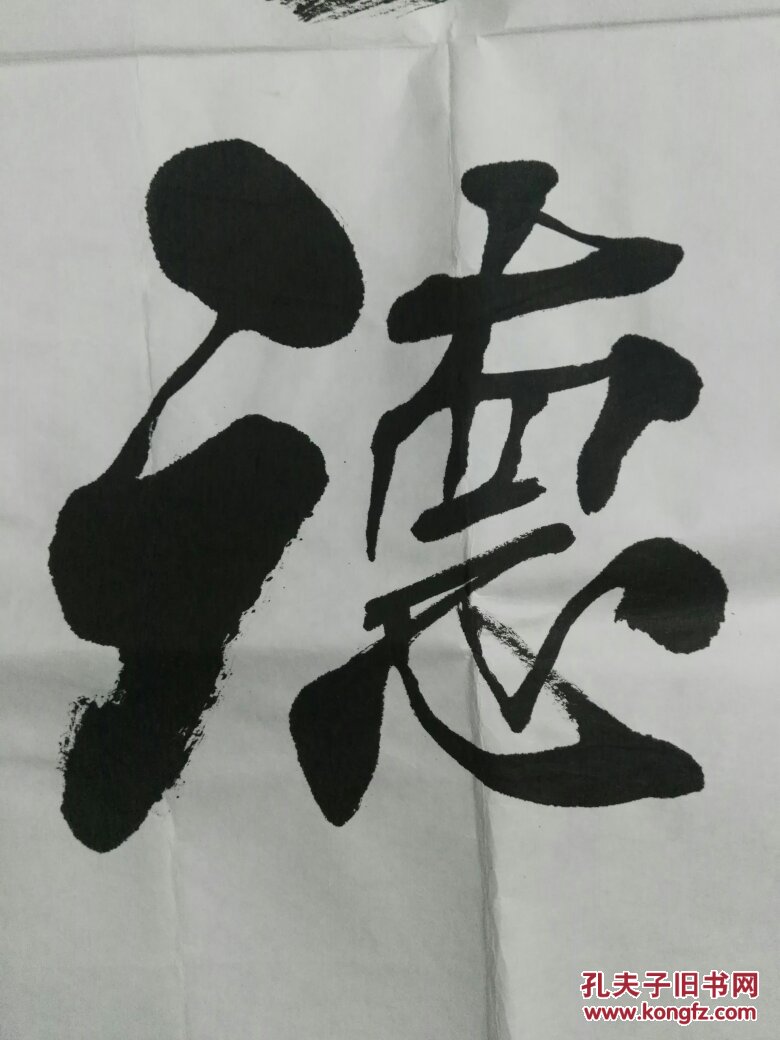 德
孔夫子旧书网
www.kongfz.com